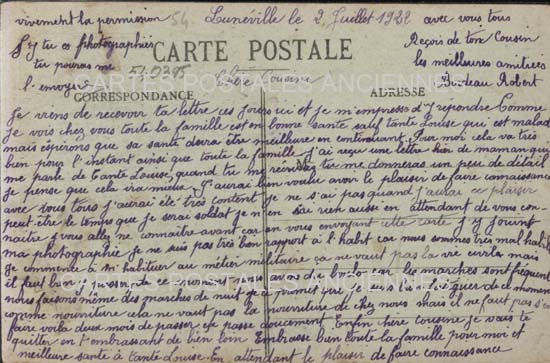 vivement la permission
Si y tu as photographies
tu pourras me
l'envoyer
54
510395
Lunéville le 2 Juillet 1922
avec vous tous
Reçois de ton Cousin
les meilleures amitiées
Burdeau Robert
CARTE POSTALE
CARTES POSTALES ANCIENNES
Chère Cousine
CORRESPONDANCE
ADRESSE
Je viens de recevoir ta lettre ces jours ci et je m'empresse d'y repondre Comme
je vois chez vous toute la famille est en bonne santé sauf tante Louise qui est malade
mais espérons que sa santé devra être meilleure en continuant. Pour moi cela va très
bien pour l'instant ainsi que toute la famille j'ai reçu une lettre hier de maman qui
me parle de Tante Louise, quand tu me tu me donneras un peu de détail
je pense que cela ira mieux. J'aurai bien voulu avoir le plaisir de faire connaissance
avec vous tous j'aurai été très content je ne s'ai pas quand j'aurai ce plaisir
peut être le temps que je serai soldat je n'en sai rien aussi en attendant de vous con-
naitre vous allez me connaitre avant car en vous envoyant cette carte j'y joint
ma photographie je ne suis pas très bon rapport à l'habit car nous sommes très mal habillés
Je commence à m'habituer au métier militaire ça ne vaut pas la vie civile mais
il faut bien passer ce que nous avons du car les marches sont fréquentes
nous faisons même des marches de nuit je te promet que je suis de ce moment
comme nourriture cela ne vaut pas la nourriture de chez nous mais il ne faut pas s'en
faire voila deux mois de passer ça passe doucement. Enfin chere cousine je vais te
quitter en t'embrassant de bien loin Embrasse bien toute la famille pour moi et
meilleure santé à tante Louise. En attendant le plaisir de faire connaissance